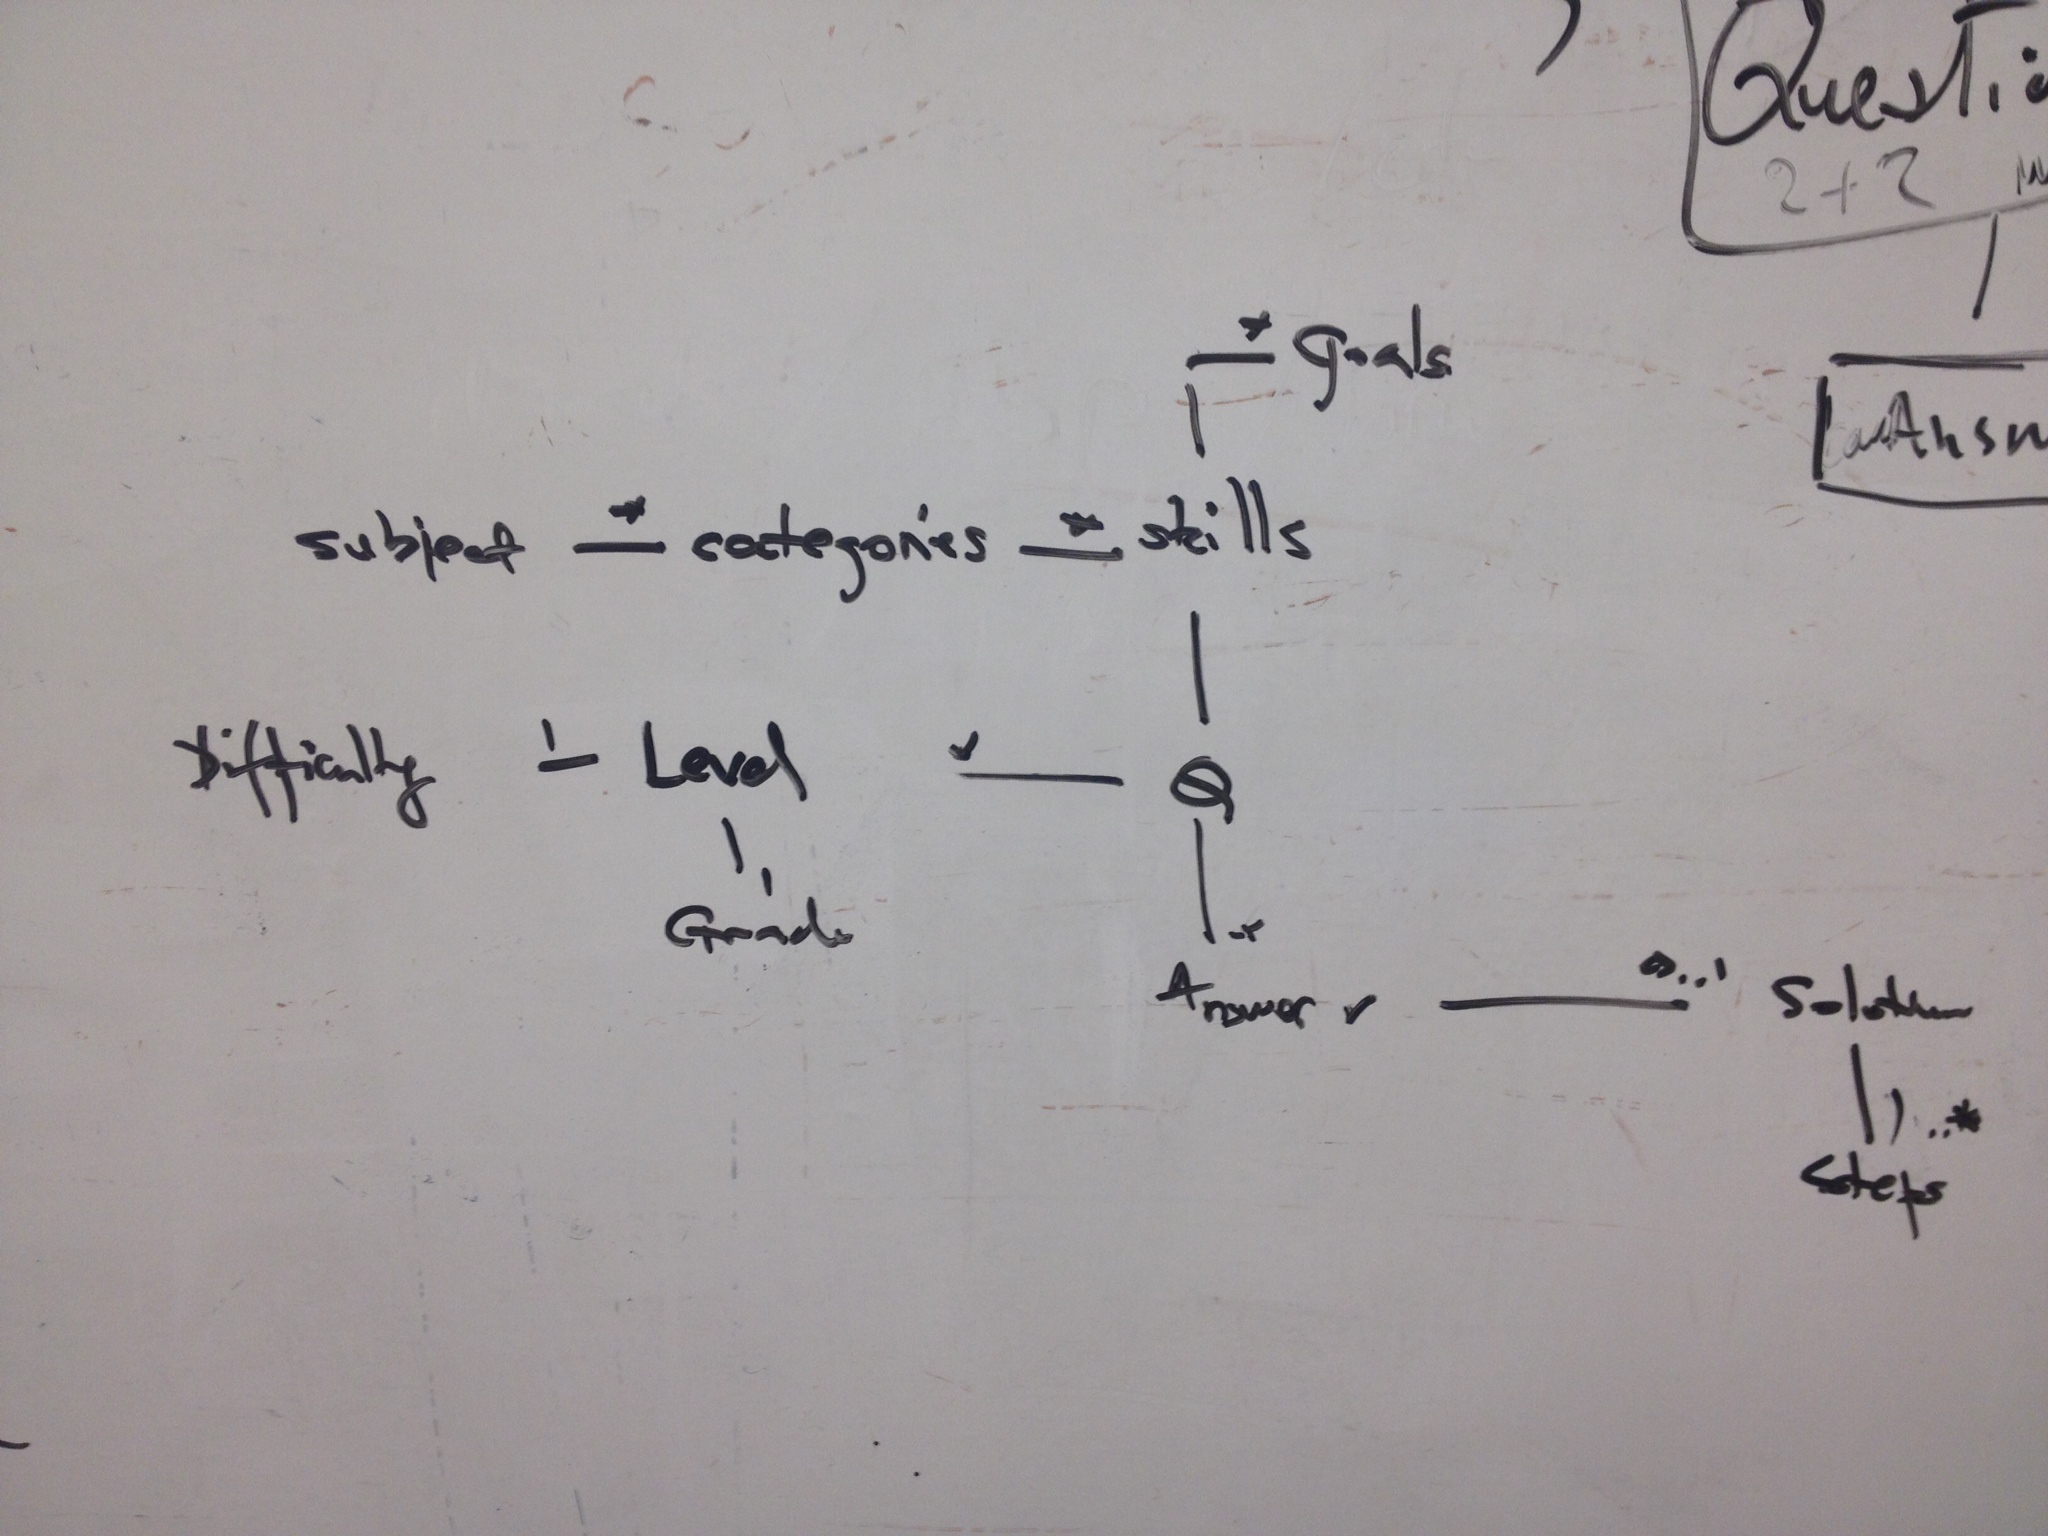 Questio
2+2
* Goals
Answ
subject * categories * skills
Difficulty 1 Level Q
Grade
Answer 0..1 Solution
1..*
Steps